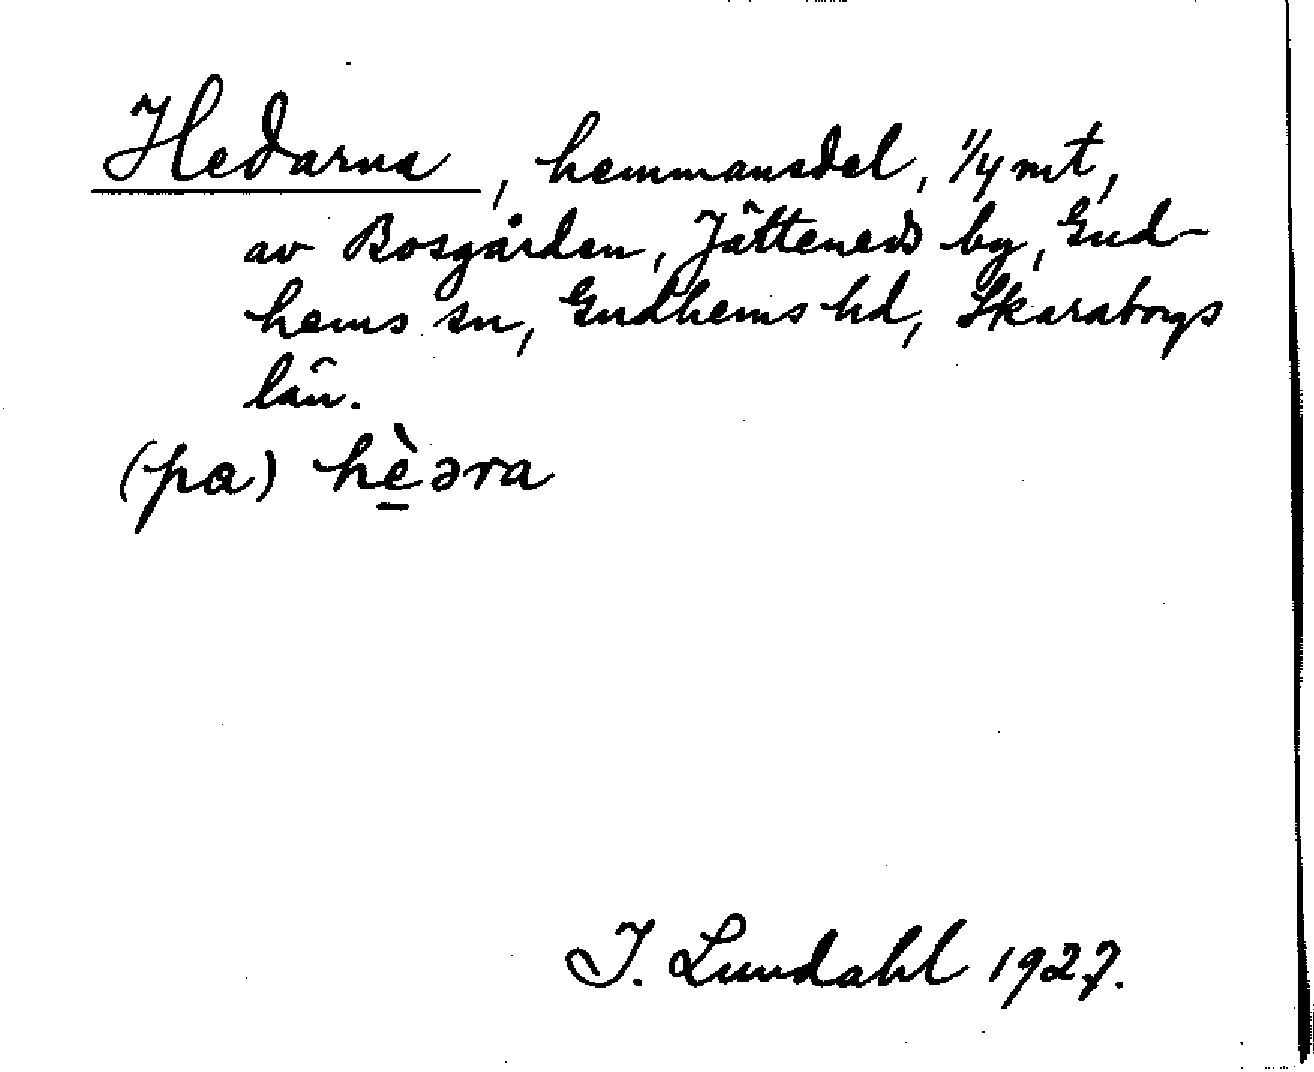 Hedarna, hemmansdel, 1/4 mt,
av Bosgården, Jätteneds by, Gud-
hems sn, Gudhems hd, Skaraborgs
län.
(pa) hè̱əra
I. Lundahl 1927.